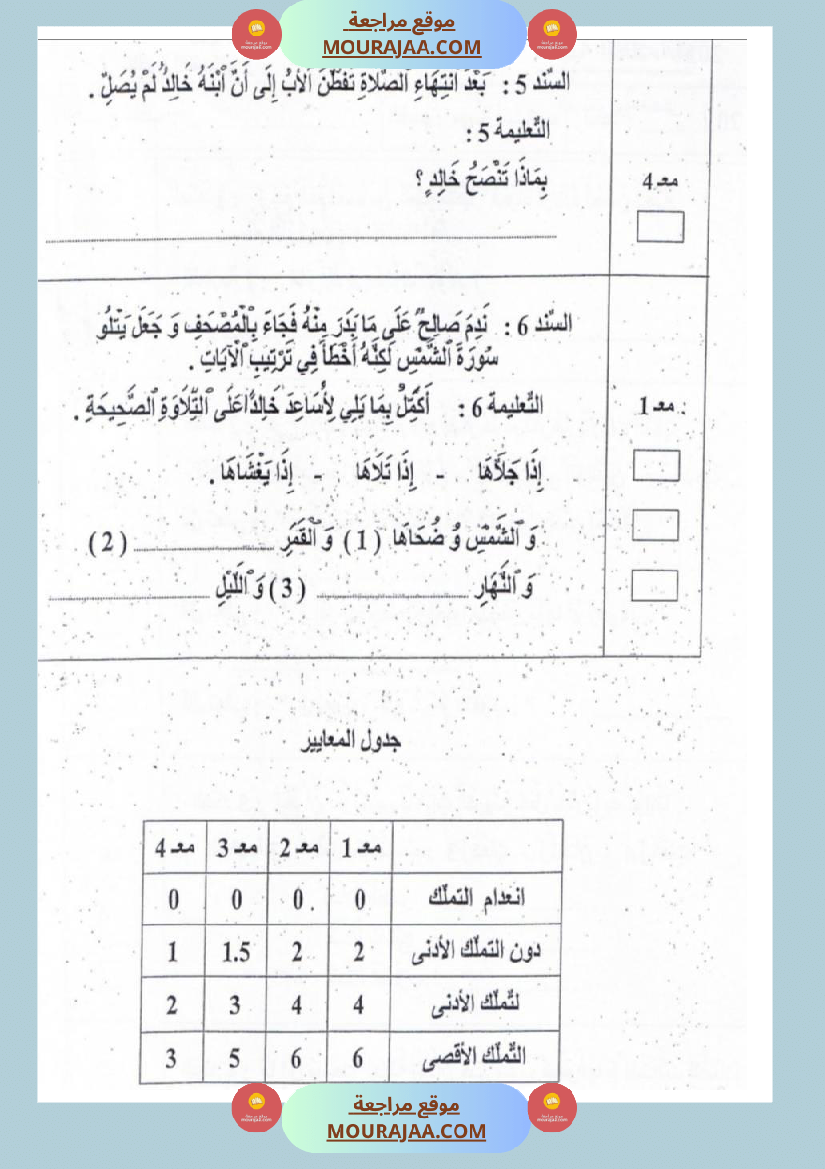 موقع مراجعة
MOURAJAA.COM
السّند 5 : بَعْدَ انْتِهَاءِ ٱلصَّلَاةِ تَفَطَّنَ ٱلأَبُ إِلَى أَنَّ ٱبْنَهُ خَالِدٌ لَمْ يُصَلِّ .
التّعليمة 5 :
بِمَاذَا تَنْصَحُ خَالِدٍ ؟
معـ 4
السّند 6 : نَدِمَ صَالِحٌ عَلَى مَا بَدَرَ مِنْهُ فَجَاءَ بِٱلْمُصْحَفِ وَ جَعَلَ يَتْلُو
سُورَةَ ٱلشَّمْسِ لَكِنَّهُ أَخْطَأَ فِي تَرْتِيبِ ٱلْآيَاتِ .
التّعليمة 6 : أُكَمِّلُ بِمَا يَلِي لِأُسَاعِدَ خَالِدًا عَلَى ٱلتِّلَاوَةِ ٱلصَّحِيحَةِ .
معـ 1
إِذَا جَلَّاهَا - إِذَا تَلَاهَا - إِذَا يَغْشَاهَا .
وَ ٱلشَّمْسِ وُ ضُحَاهَا (1) وَ ٱلْقَمَرِ ............ (2)
وَ ٱلنَّهَارِ ............ (3) وَ ٱللَّيْلِ ............
جدول المعايير
معـ 1 معـ 2 معـ 3 معـ 4
انعدام التملّك 0 0 0 0
دون التملّك الأدنى 2 2 1.5 1
لتّملّك الأدنى 4 4 3 2
التّملّك الأقصى 6 6 5 3
موقع مراجعة
MOURAJAA.COM